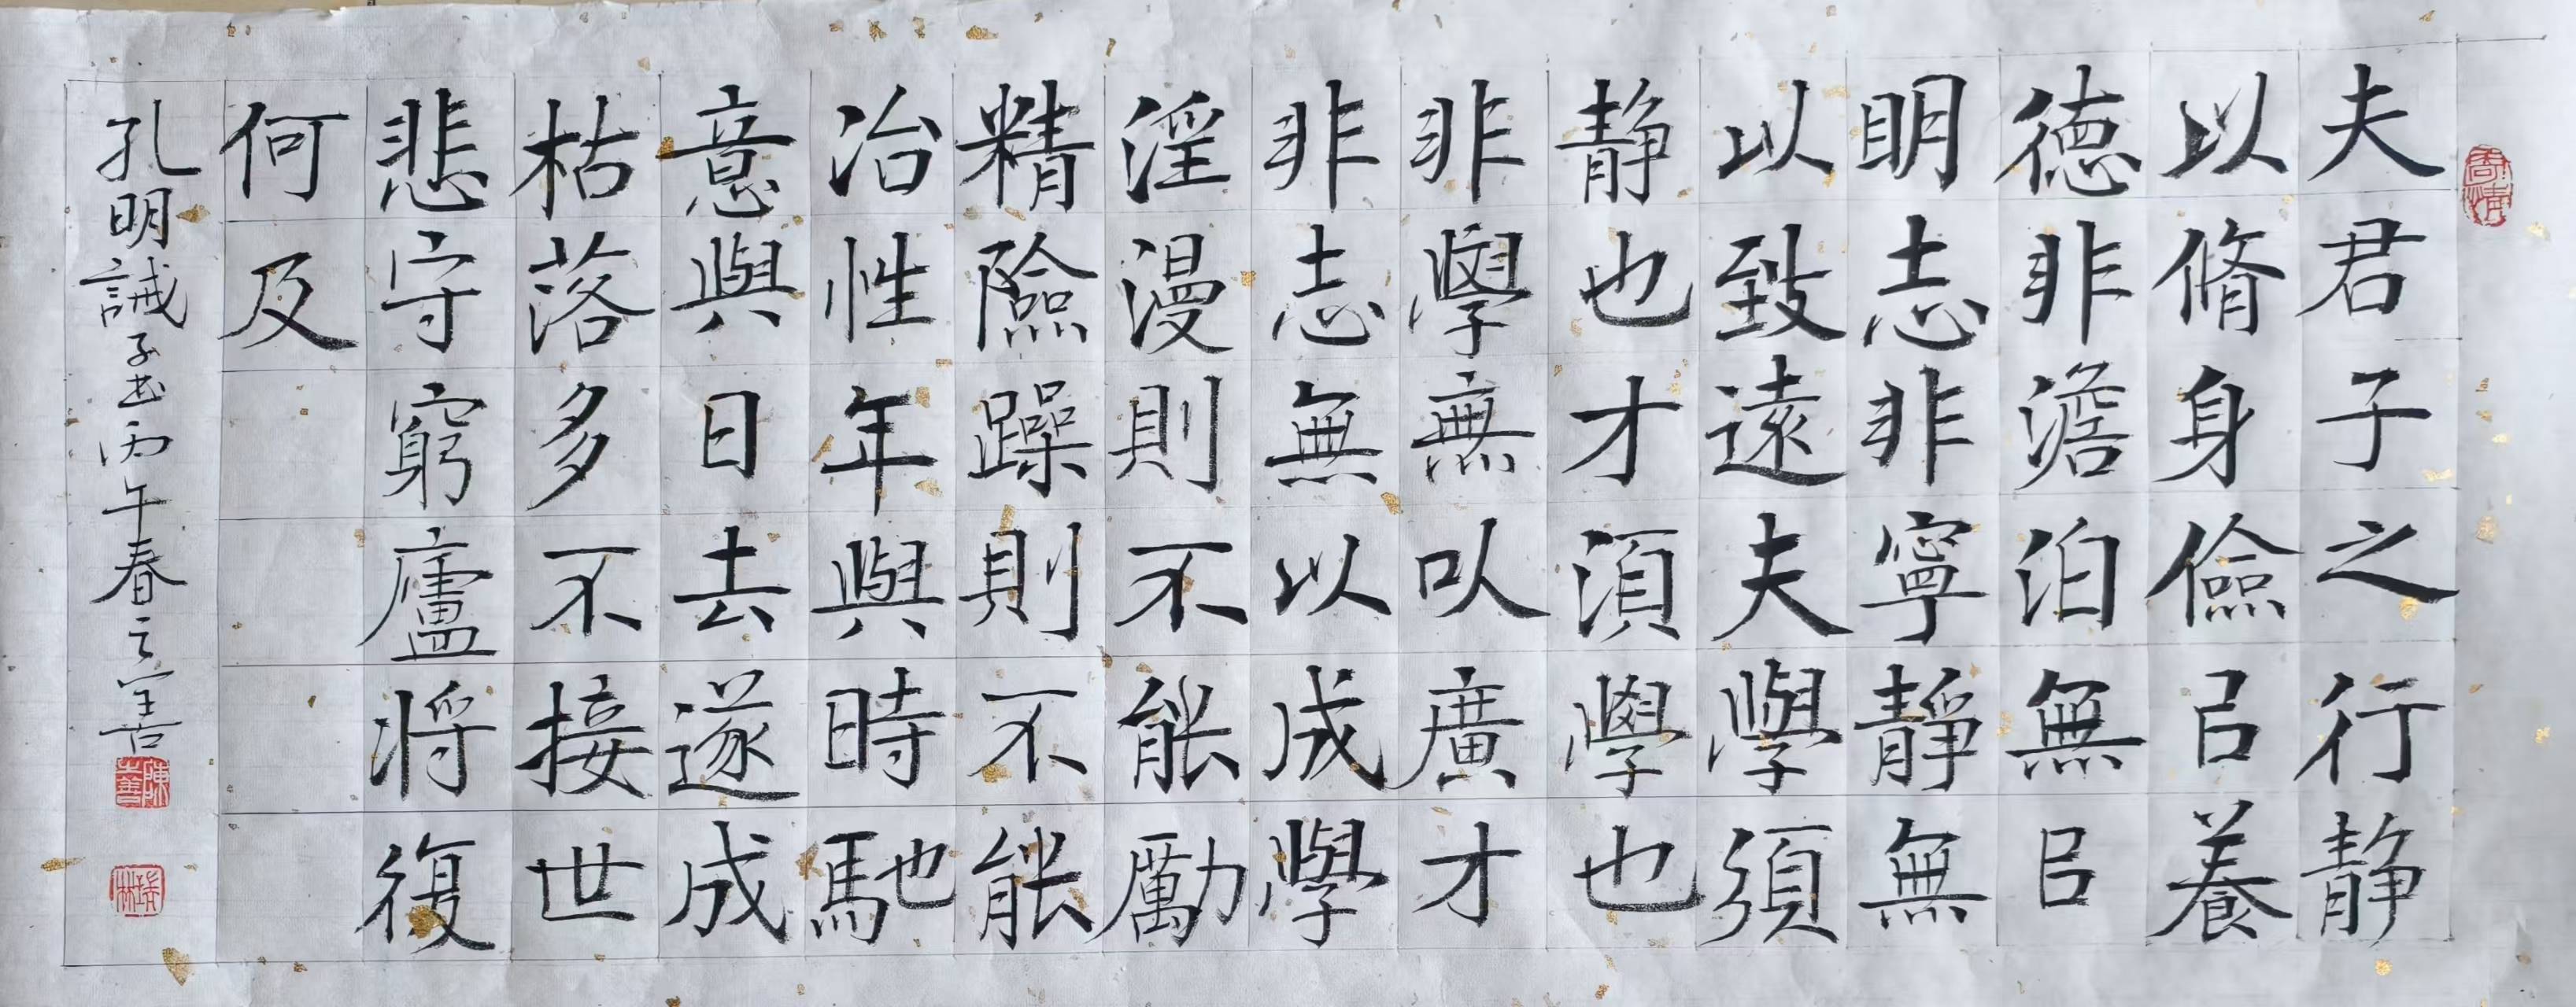 夫君子之行静
以脩身儉㠯養
德非澹泊無㠯
明志非寧靜無
以致遠夫學須
静也才須學也
非學無以廣才
非志無以成學
淫漫則不能勵
精險躁則不能
冶性年與時馳
意與日去遂成
枯落多不接世
悲守窮廬將復
何及
孔明誡子书丙午春士善
陳士善